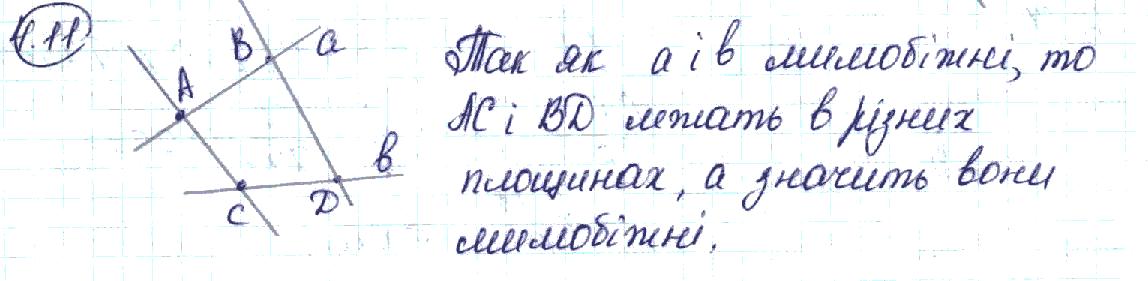 4.11
B a
A
b
C D
Так як a і b мимобіжні, то
AC і BD лежать в різних
площинах, а значить вони
мимобіжні.